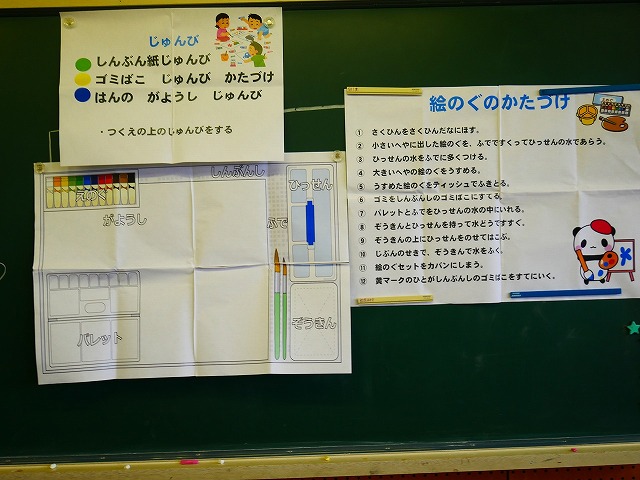 じゅんび
しんぶん紙じゅんび
ゴミばこ じゅんび かたづけ
はんの がようし じゅんび
・つくえの上のじゅんびをする
しんぶんし
えのぐ
がようし
ひっせん
ふで
パレット
ぞうきん
絵のぐのかたづけ
① さくひんをさくひんだなにほす。
② 小さいへやに出した絵のぐを、ふでですくってひっせんの水であらう。
③ ひっせんの水をふでに多くつける。
④ 大きいへやの絵のぐをうすめる。
⑤ うすめた絵のぐをティッシュでふきとる。
⑥ ゴミをしんぶんしのゴミばこにすてる。
⑦ パレットとふでをひっせんの水の中にいれる。
⑧ ぞうきんとひっせんを持って水どうですすぐ。
⑨ ぞうきんの上にひっせんをのせてはこぶ。
⑩ じぶんのせきで、ぞうきんで水をふく。
⑪ 絵のぐセットをカバンにしまう。
⑫ 黄マークのひとがしんぶんしのゴミばこをすてにいく。